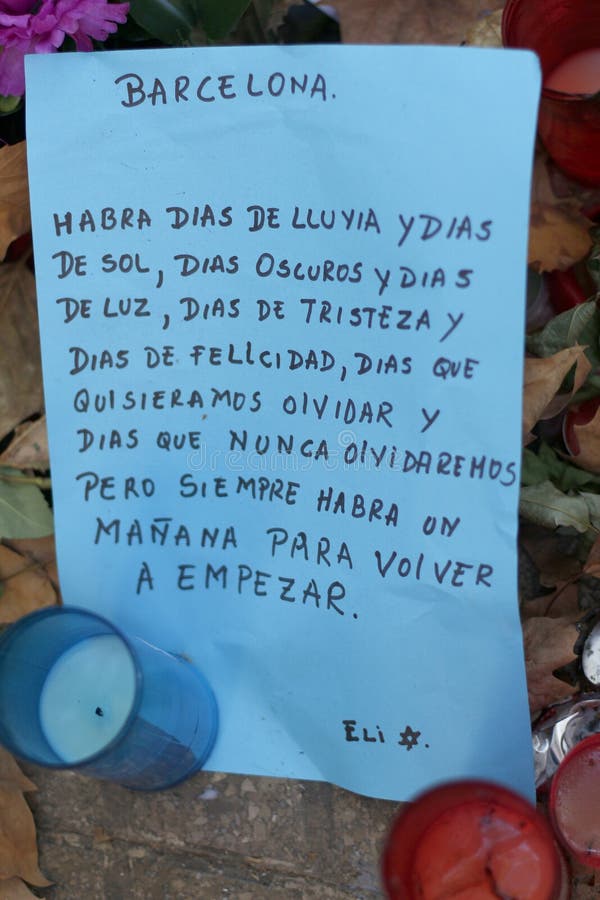 BARCELONA.
HABRA DIAS DE LLUVIA Y DIAS
DE SOL, DIAS OSCUROS Y DIAS
DE LUZ, DIAS DE TRISTEZA Y
DIAS DE FELICIDAD, DIAS QUE
QUISIERAMOS OLVIDAR Y
DIAS QUE NUNCA OLVIDAREMOS
PERO SIEMPRE HABRA UN
MAÑANA PARA VOLVER
A EMPEZAR.
ELI ✡.
dreamstime.com